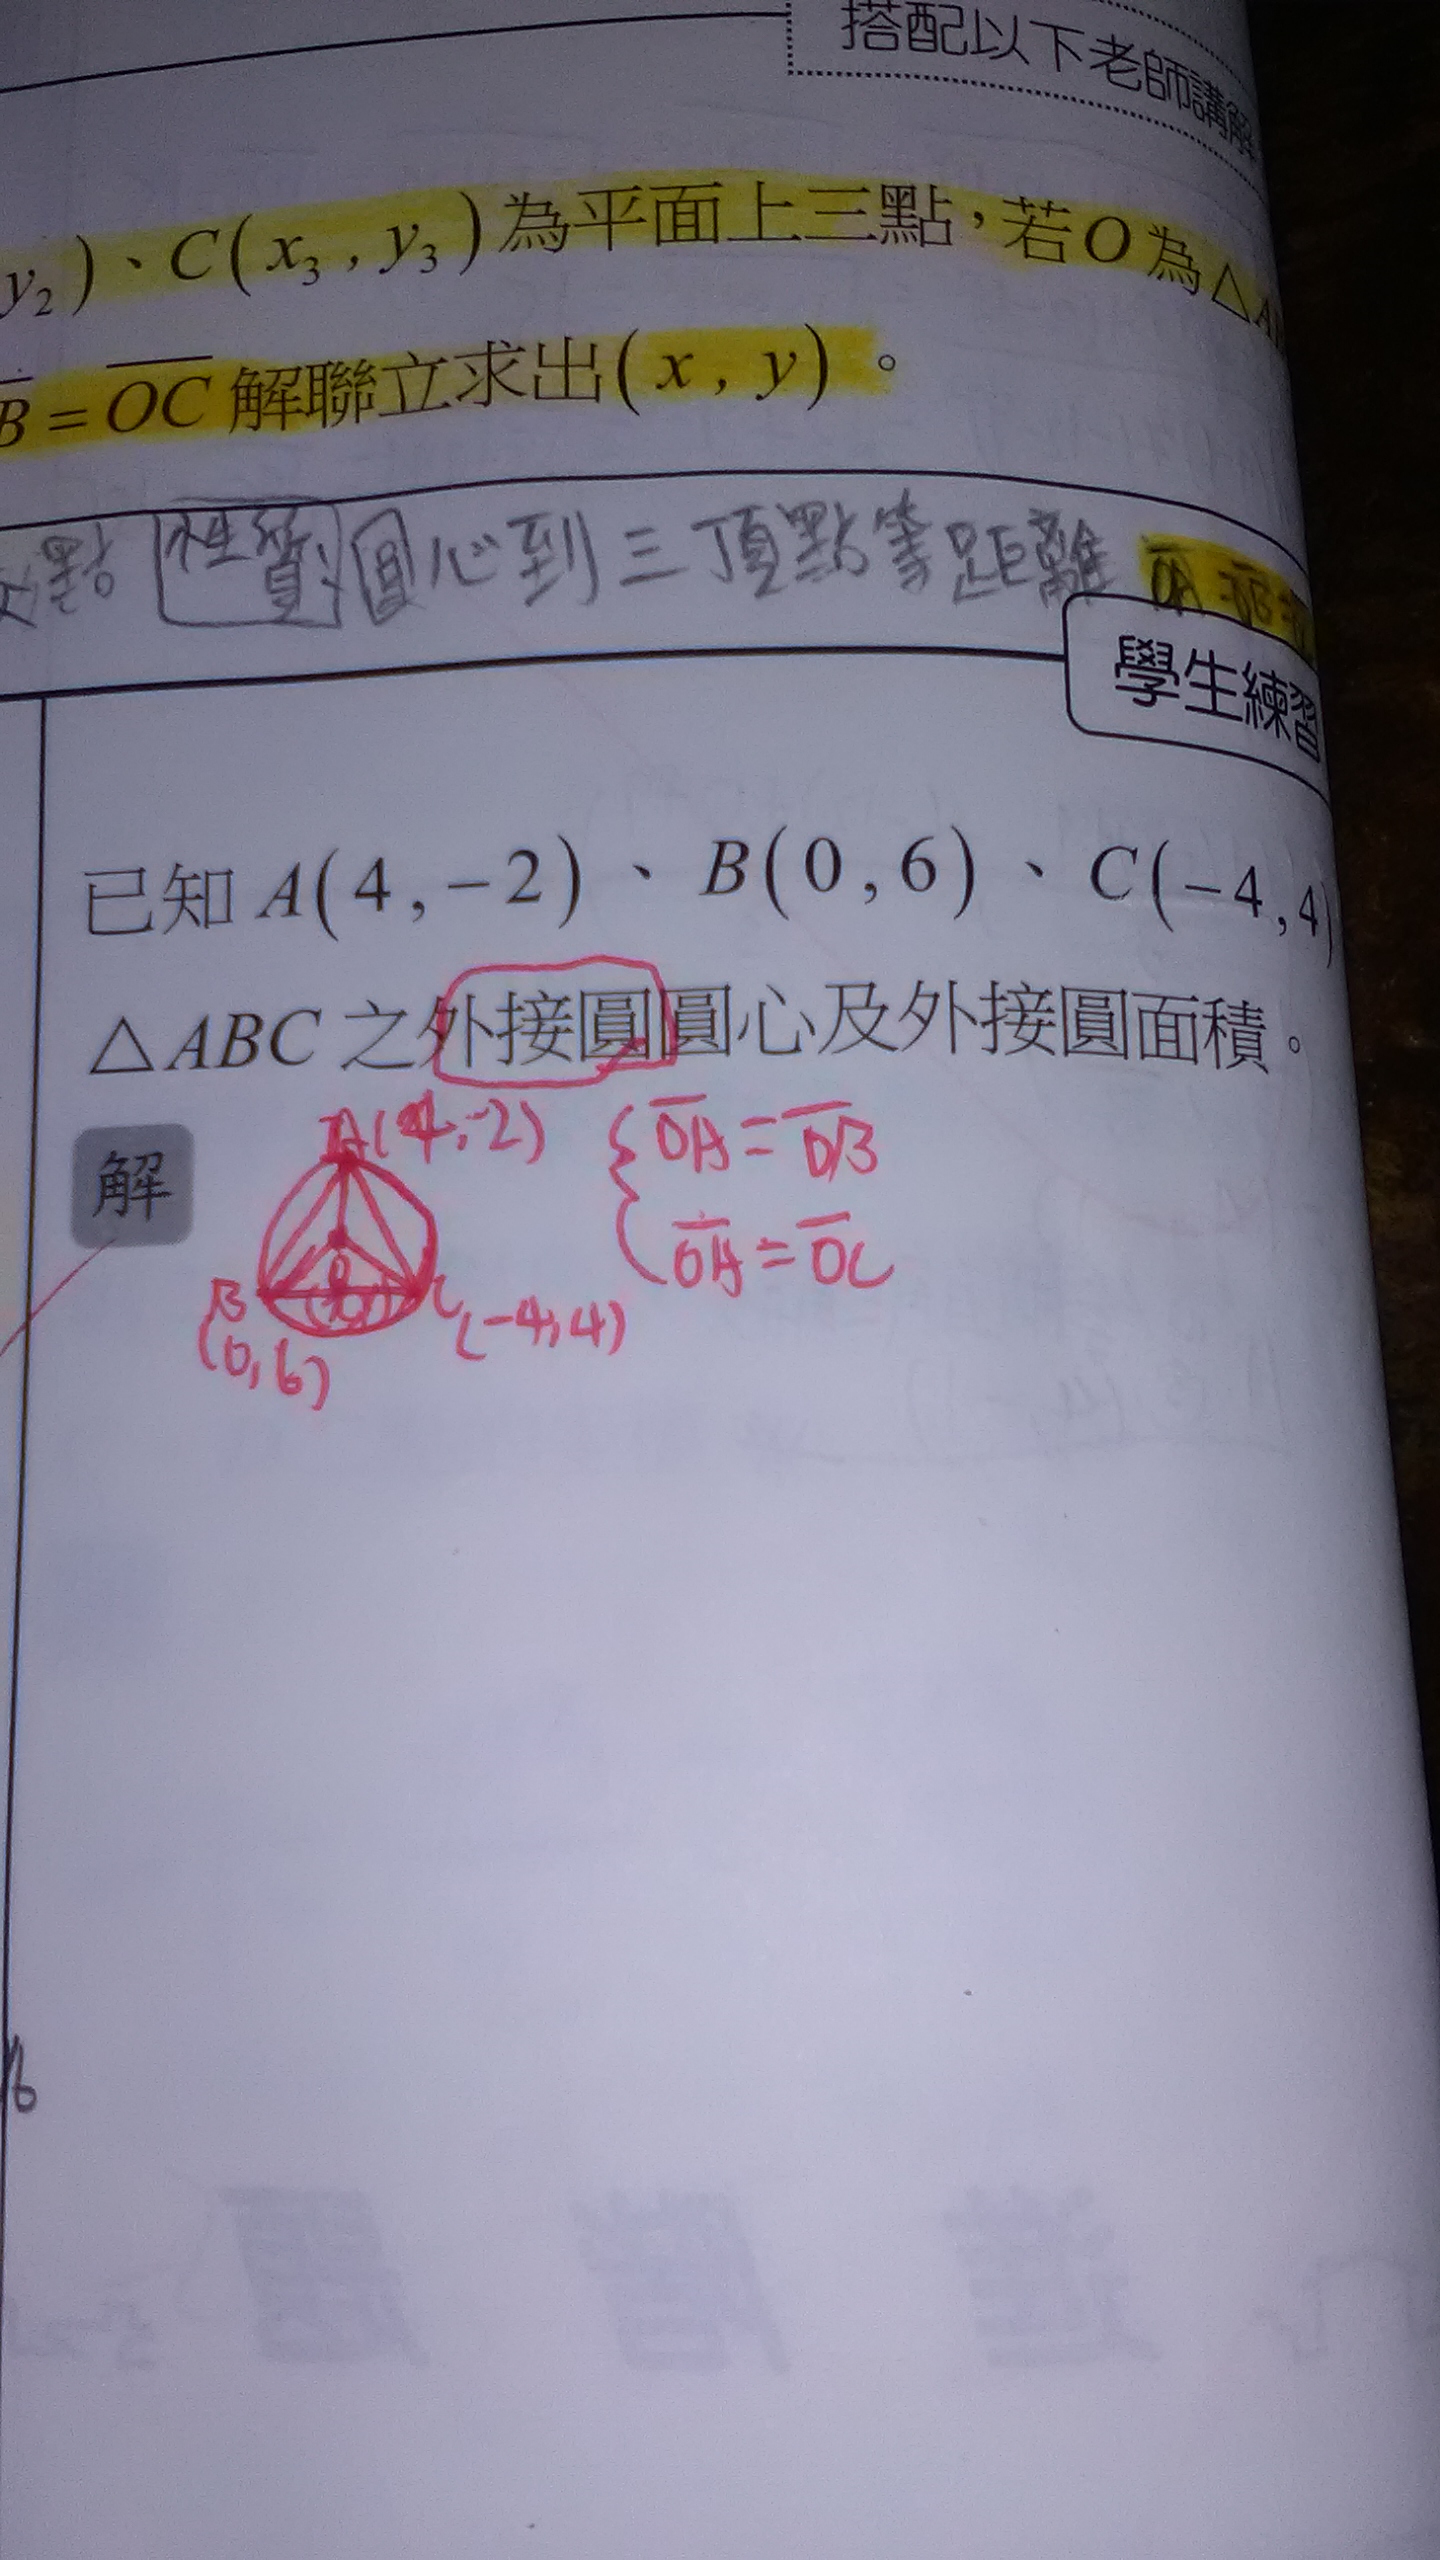 搭配以下老師講解
y₂)、C(x₃, y₃)為平面上三點，若O為△A
B = OC 解聯立求出(x, y)。
點 性質: 圓心到三頂點等距離 OA = OB =
學生練習
已知A(4, −2)、B(0, 6)、C(−4, 4)
△ABC之外接圓圓心及外接圓面積。
解
A(4, -2)
OA = OB
OA = OC
O
B
(0, 6)
C
(-4, 4)